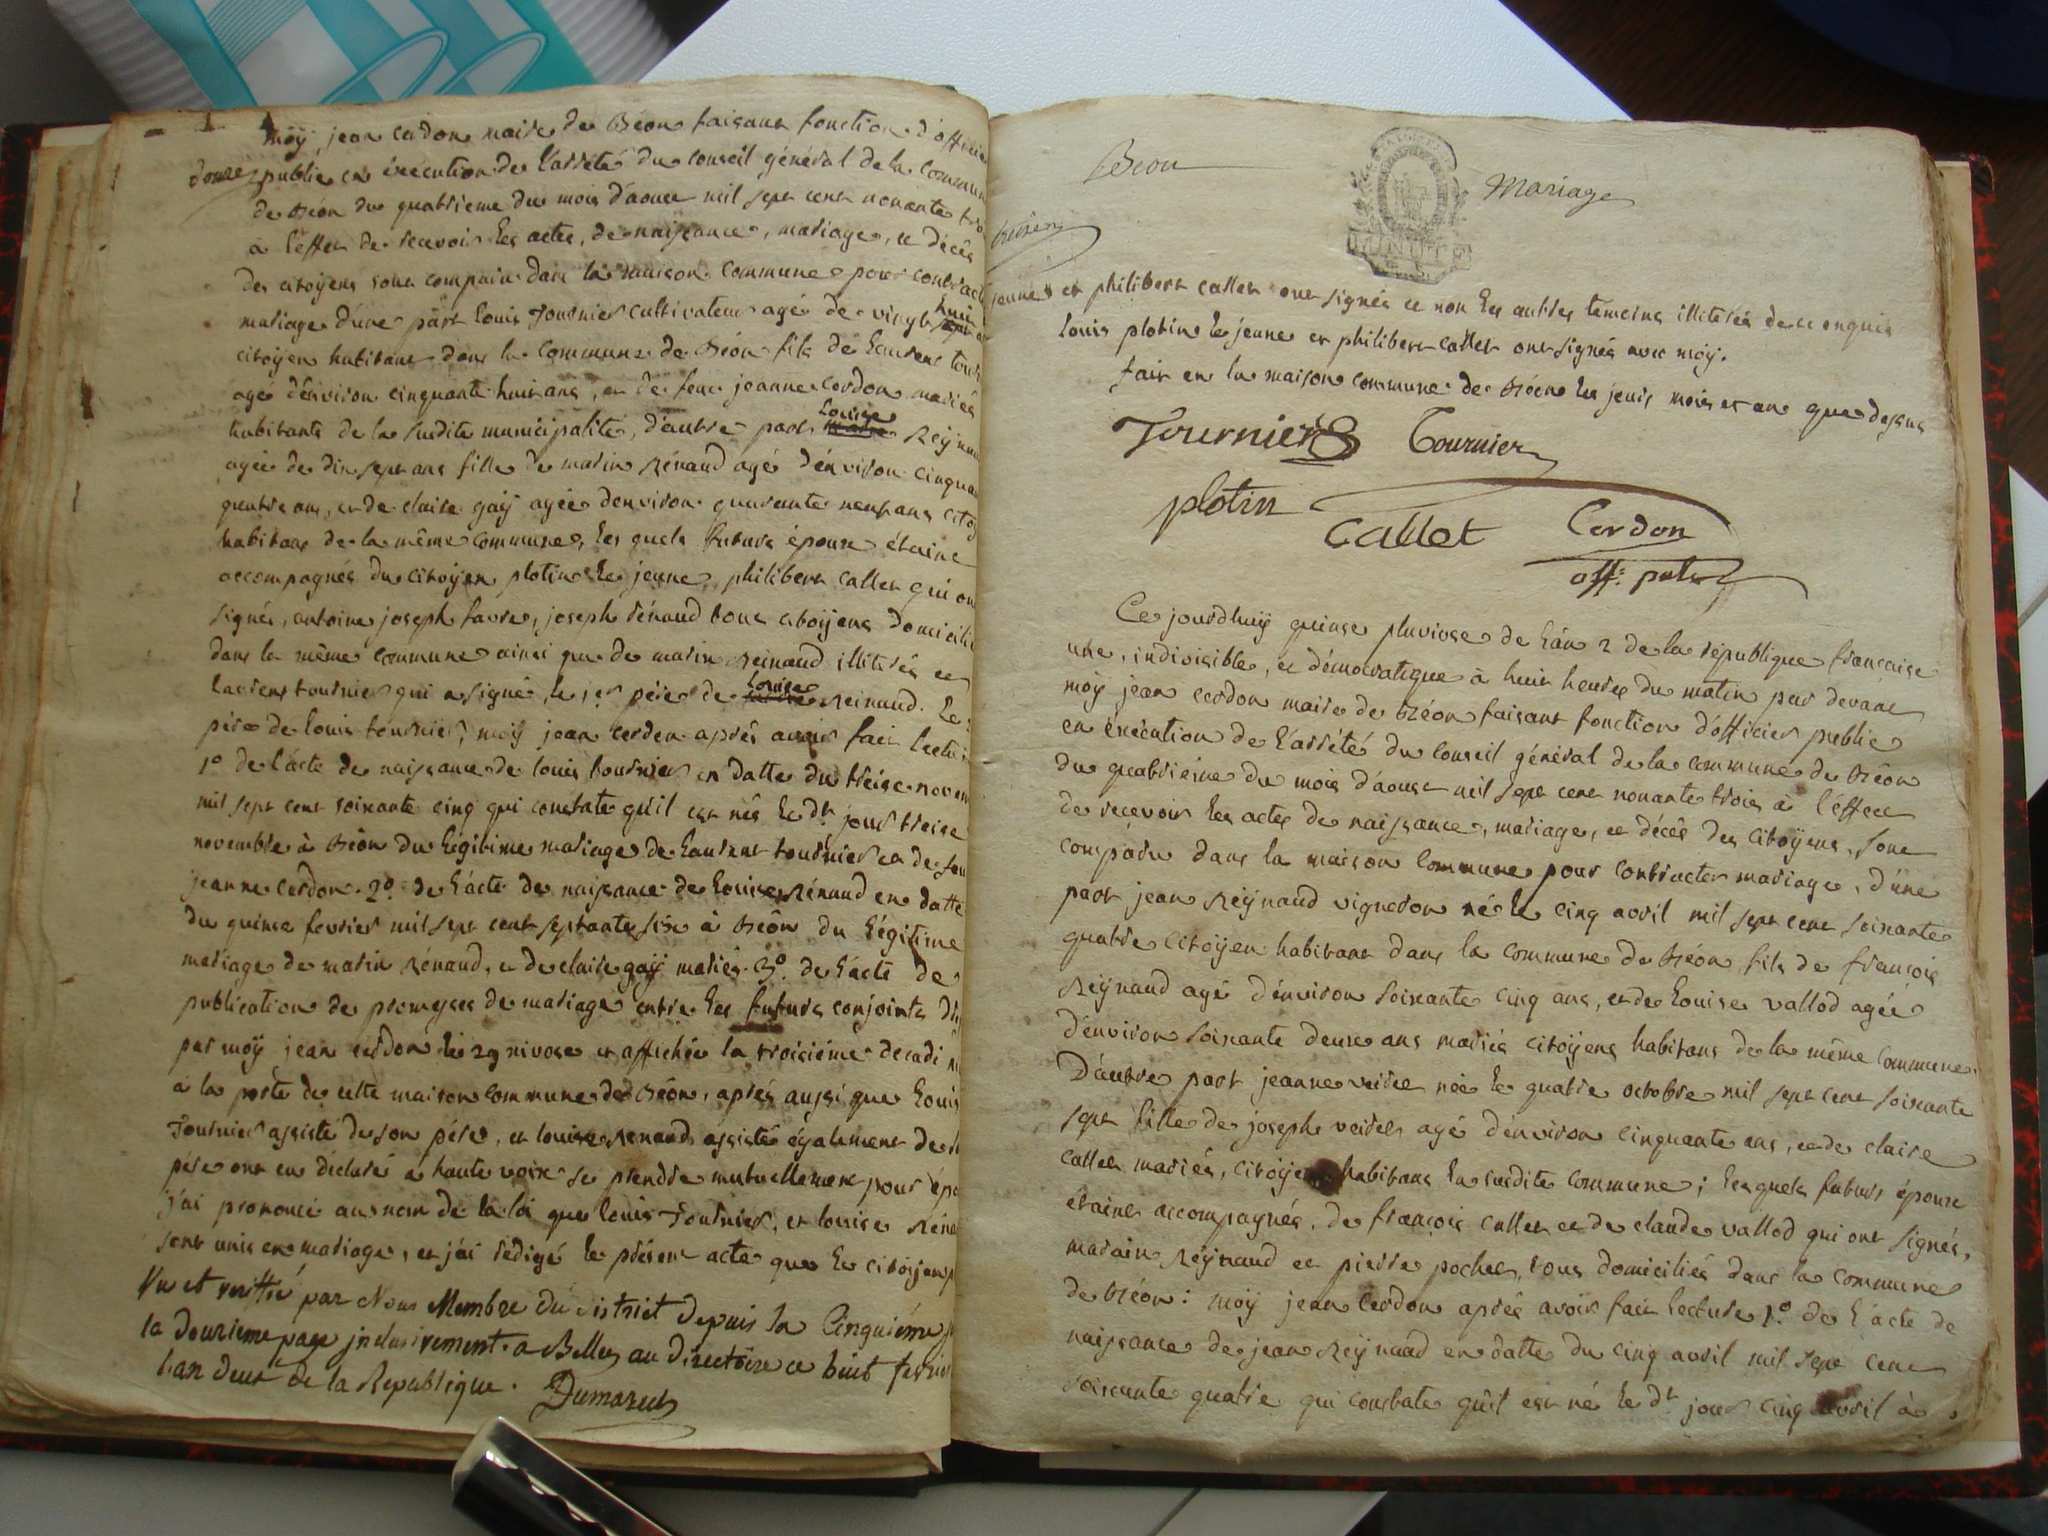 moÿ, jean cerdon maire de Béon faisant fonction d'officier
douze publie en éxécution de l'arrété du conseil général de la commun
de Béon du quatrieme du mois d'aoust mil sept cent nonante tro
à l'effet de recevoir les actes, de naissance, mariage, et décès
des citoyens sont comparu dans la maison commune pour contract
mariage d'une part louis Tournier cultivateur agé de vingt huit
citoyen habitant dans la commune de Béon fils de laurent tour
agé d'environ cinquante huit ans, et de feue jeanne cerdon mariés
habitants de la susdite municipalité, d'autre part louise Reÿnau
agée de dix sept ans fille de marin Rénaud agé d'environ cinquan
quatre ans, et de claire gaÿ agée denviron quarante neuf ans citoÿ
habitans de la même commune, les quels futurs époux étaint
accompagnés du citoyen plotin le jeune, philibert callet qui on
signés, antoine joseph favre, joseph rénaud tous citoÿens domicili
dans la même commune ainsi que de marin Reinaud illiterés et
laurent tournier qui a signé, le 1er père de louise Reinaud. le
père de louis tournier, moÿ jean cerdon après avoir fait lectu
1º de l'acte de naissance de louis tournier en datte du treize novem
mil sept cent soixante cinq qui constate qu'il est nés le dt jour treize
novembre à Béon du légitime mariage de laurent tournier et de feu
jeanne cerdon. 2º de l'acte de naissance de louise Rénaud en datte
du quinze fevrier mil sept cent septante six à Béon du légitime
mariage de marin Rénaud, et de claire gaÿ mariés. 3º. de l'acte de
publication de promesses de mariage entre les futurs conjoints
par moÿ jean cerdon le 29 nivose et affichée la troisiéme decadi
à la porte de cette maison commune de Béon, après aussi que louis
Tournier assisté de son père, et louise Renaud assisté également de
père ont eu déclaré à haute voix se prendre mutuellement pour épo
j'ai prononcé au nom de la loi que louis Tournier, et louise Réna
sont unis en mariage, et j'ai rédigé le présent acte que le citoÿen p
Vu et verifié par Nous Membre du district depuis la Cinquiéme
la douzieme page jnclusivement a Belley au directoire ce huit fevrier
l'an deux de la Republique. Dumarest
Béon Mariage
treize
jeune, et philibert callet ont signés et non les autres témoins illiterés de ce enquis
louis plotin le jeune et philibert callet ont signés avec moÿ.
fait en la maison commune de Béon les jour, mois et an que dessus
Tournier Tournier
plotin
Callet Cerdon
off: public
Ce jourdhuÿ quinze pluviose de l'an 2 de la république francaise
une, indivisible, et démocratique à huit heures du matin par devant
moÿ jean cerdon maire de Béon faisant fonction d'officier public
en éxécution de l'arrété du conseil général de la commune de Béon
du quatrieme du mois d'aoust mil sept cent nonante trois à l'effet
de recevoir les actes de naissance, mariage, et décès des citoÿens, sont
comparu dans la maison commune pour contracter mariage, d'une
part jean Reÿnaud vigneron né le cinq avril mil sept cent soixante
quatre citoÿen habitant dans la commune de Béon fils de françois
Reÿnaud agé d'environ soixante cinq ans, et de louise vallod agée
d'environ soixante deux ans mariés citoÿens habitans de la même commune.
D'autre part jeanne veirel née le quatre octobre mil sept cent soixante
sept fille de joseph veirel agé d'environ cinquante ans, et de claire
callet mariés, citoÿens habitans la susdite commune; les quels futurs époux
étaint accompagnés, de françois callet et de claude vallod qui ont signés,
marain Reÿnaud et pierre pochet, tous domiciliés dans la commune
de Béon: moÿ jean cerdon après avoir fait lecture 1º de l'acte de
naissance de jean Reÿnaud en datte du cinq avril mil sept cent
soixante quatre qui constate qu'il est né le dt jour cinq avril à